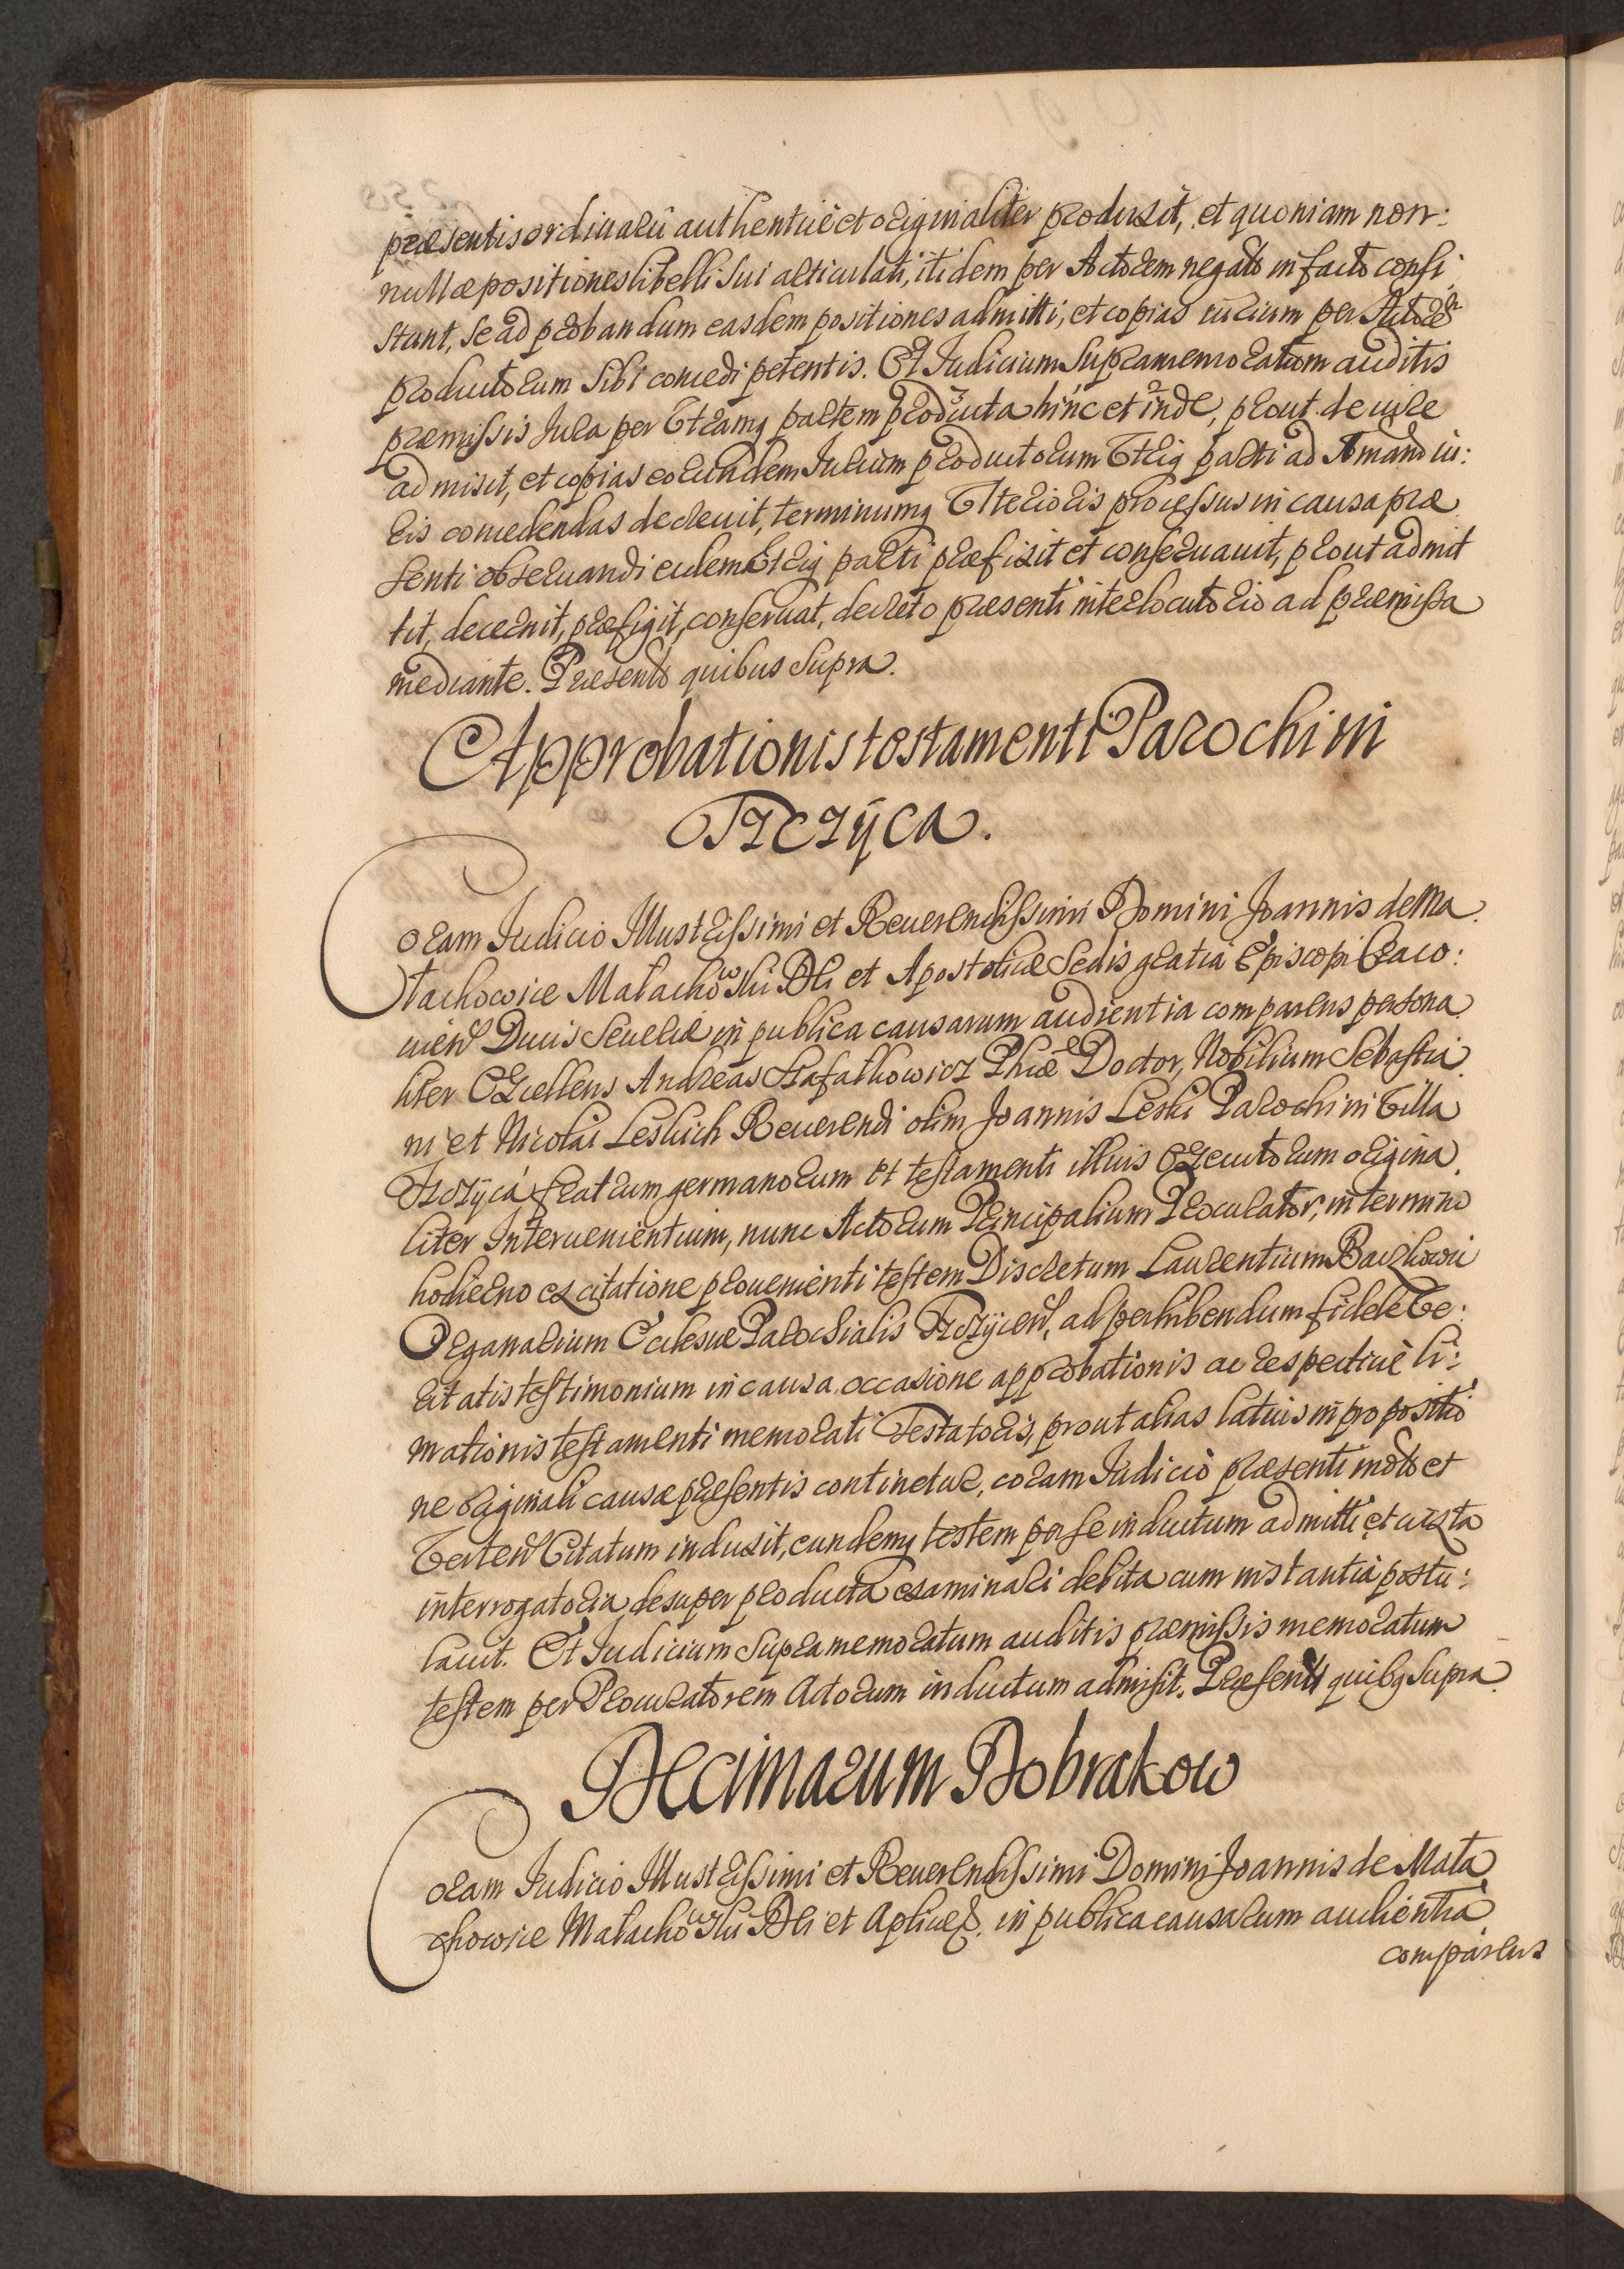 præsentis ordinariū authenticè et originaliter produxit, et quoniam non:
nullæ positiones libelli sui articulati, itidem per Actorem negatæ in facto consi:
stant, se ad probandum easdem positiones admitti, et copias iurium per Actorē
productorum sibi concedi petentis. Et Judicium supramemoratum auditis
præmissis Jura per Utramq partem producta hinc et inde, prout de iure
admisit, et copias eorundem Jurium productorum Utriq parti ad
ris concedendas decreuit, terminumq Ulterioris processus in causa præ
senti obseruandi eidem Utriq parti præfixit et conseruauit, prout admit
tit, decernit, præfigit, conseruat, decreto præsenti interlocutorio ad præmissa
mediante. Præsentib quibus supra.
Approbationis testamenti Parochi in
Trczÿca.
Coram Judicio Illustrissimi et Reuerendissimi Domini Joannis de Ma
łachowice Małachowski Dei et Apostolicæ Sedis gratia Episcopi Craco:
uien Ducis Seueriæ in publica causarum audientia comparens persona
liter Excellens Andreas Rafałkowicz Phiæ Doctor, Nobilium Sebastia
ni et Nicolai Leskich Reuerendi olim Joannis Leski Parochi in Villa
Trczÿca fratrum germanorum et testamenti illius Executorum origina
liter Interuenientium, nunc Actorum Principalium Procurator, in termino
hodierno ex citatione prouenienti testem Discretum Laurentium
Organarium Ecclesiæ Parochialis Trczÿcen, ad perhibendum fidele Ve:
ritatis testimonium in causa occasione approbationis ac respectiuè li:
mationis testamenti memorati Testatoris, prout alias latius in propositio
ne originali causæ præsentis continetur, coram Judicio præsenti modo et
Verten Citatum induxit, eundemq testem per se inductum admitti et iuxta
interrogatoria desuper producta examinari debita cum instantia postu:
lauit. Et Judicium supramemoratum auditis præmissis memoratum
testem per Procuratorem Actorum inductum admisit. Præsentib quibq supra
Decimarum Dobrakow
Coram Judicio Illustrissimi et Reuerendissimi Domini Joannis de Mała
chowice Małachowski Dei et Aplicæ &. in publica causarum audientia
comparens